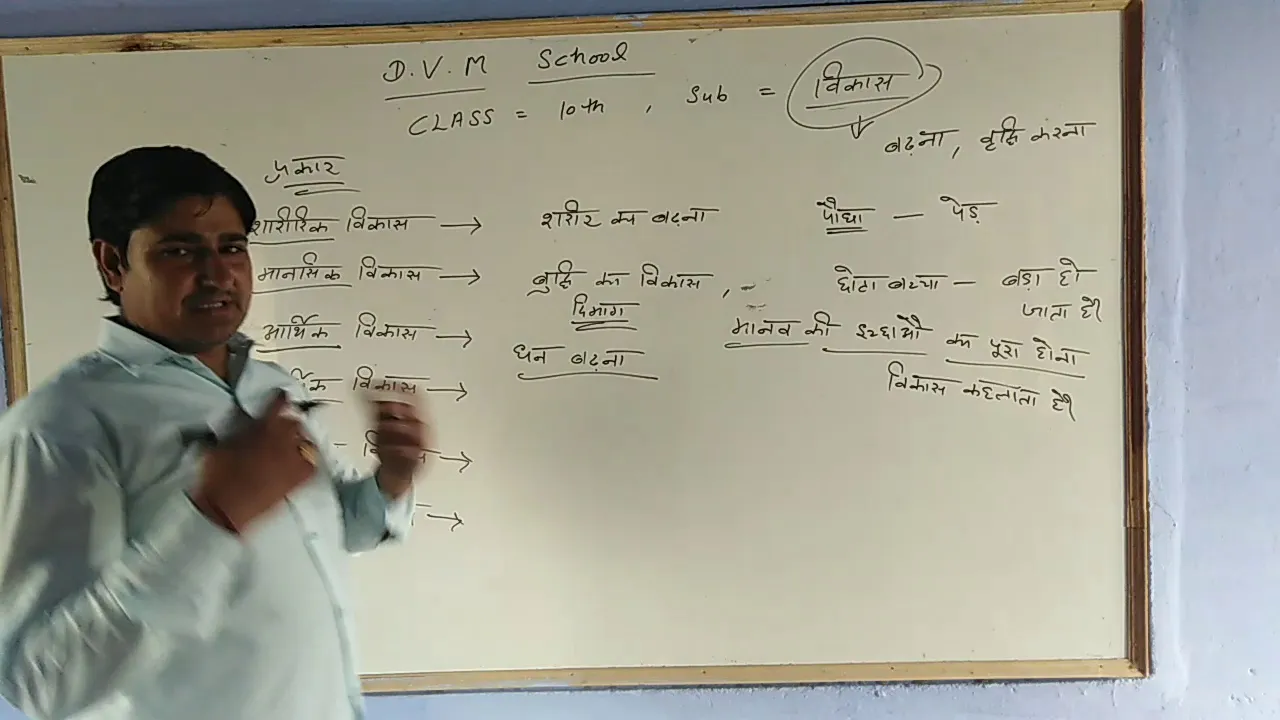 D.V.M School
CLASS = 10th, Sub = विकास
बढ़ना, वृद्धि करना
प्रकार
शारीरिक विकास → शरीर का बढ़ना
पौधा — पेड़
मानसिक विकास → बुद्धि का विकास,
दिमाग
छोटा बच्चा — बड़ा हो
जाता है।
आर्थिक विकास → धन बढ़ना
मानव की इच्छाओं का पूरा होना
विकास कहलाता है।
विकास →
→
→